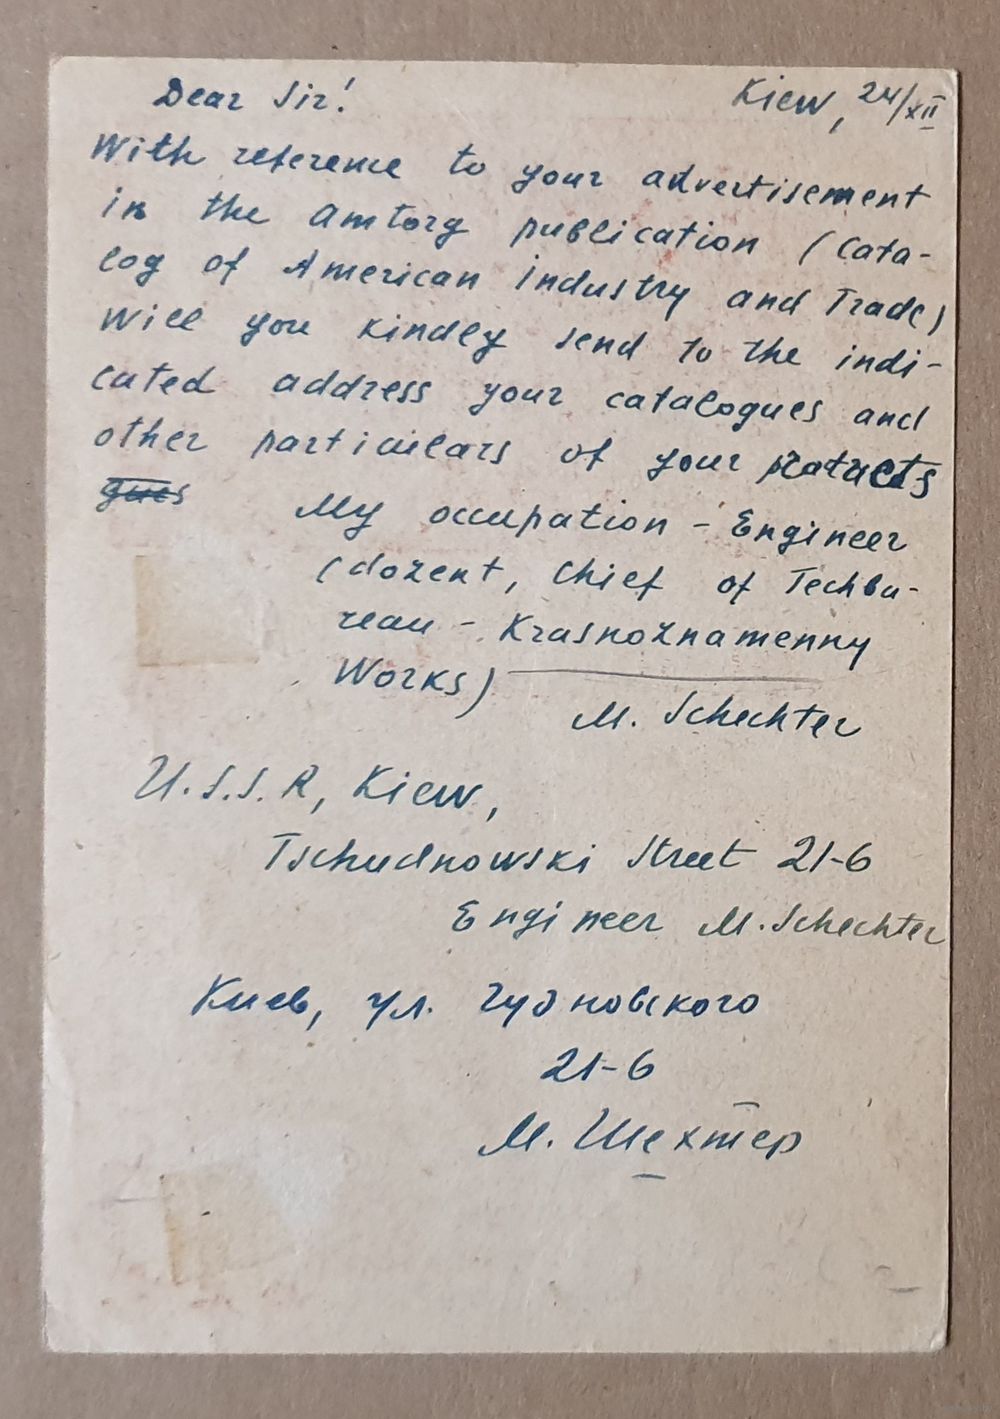 Dear Sir!
Kiew, 24/XII
With reference to your advertisement
in the Amtorg publication (Cata-
log of American Industry and Trade)
Will you kindly send to the indi-
cated address your catalogues and
other particulars of your
My occupation - Engineer
(dozent, Chief of Techbu-
reau - Krasnoznamenny
Works)
M. Schechter
U.S.S.R, Kiew,
Tschudnowski Street 21-6
Engineer M. Schechter
Киев, ул. Чудновского
21-6
М. Шехтер